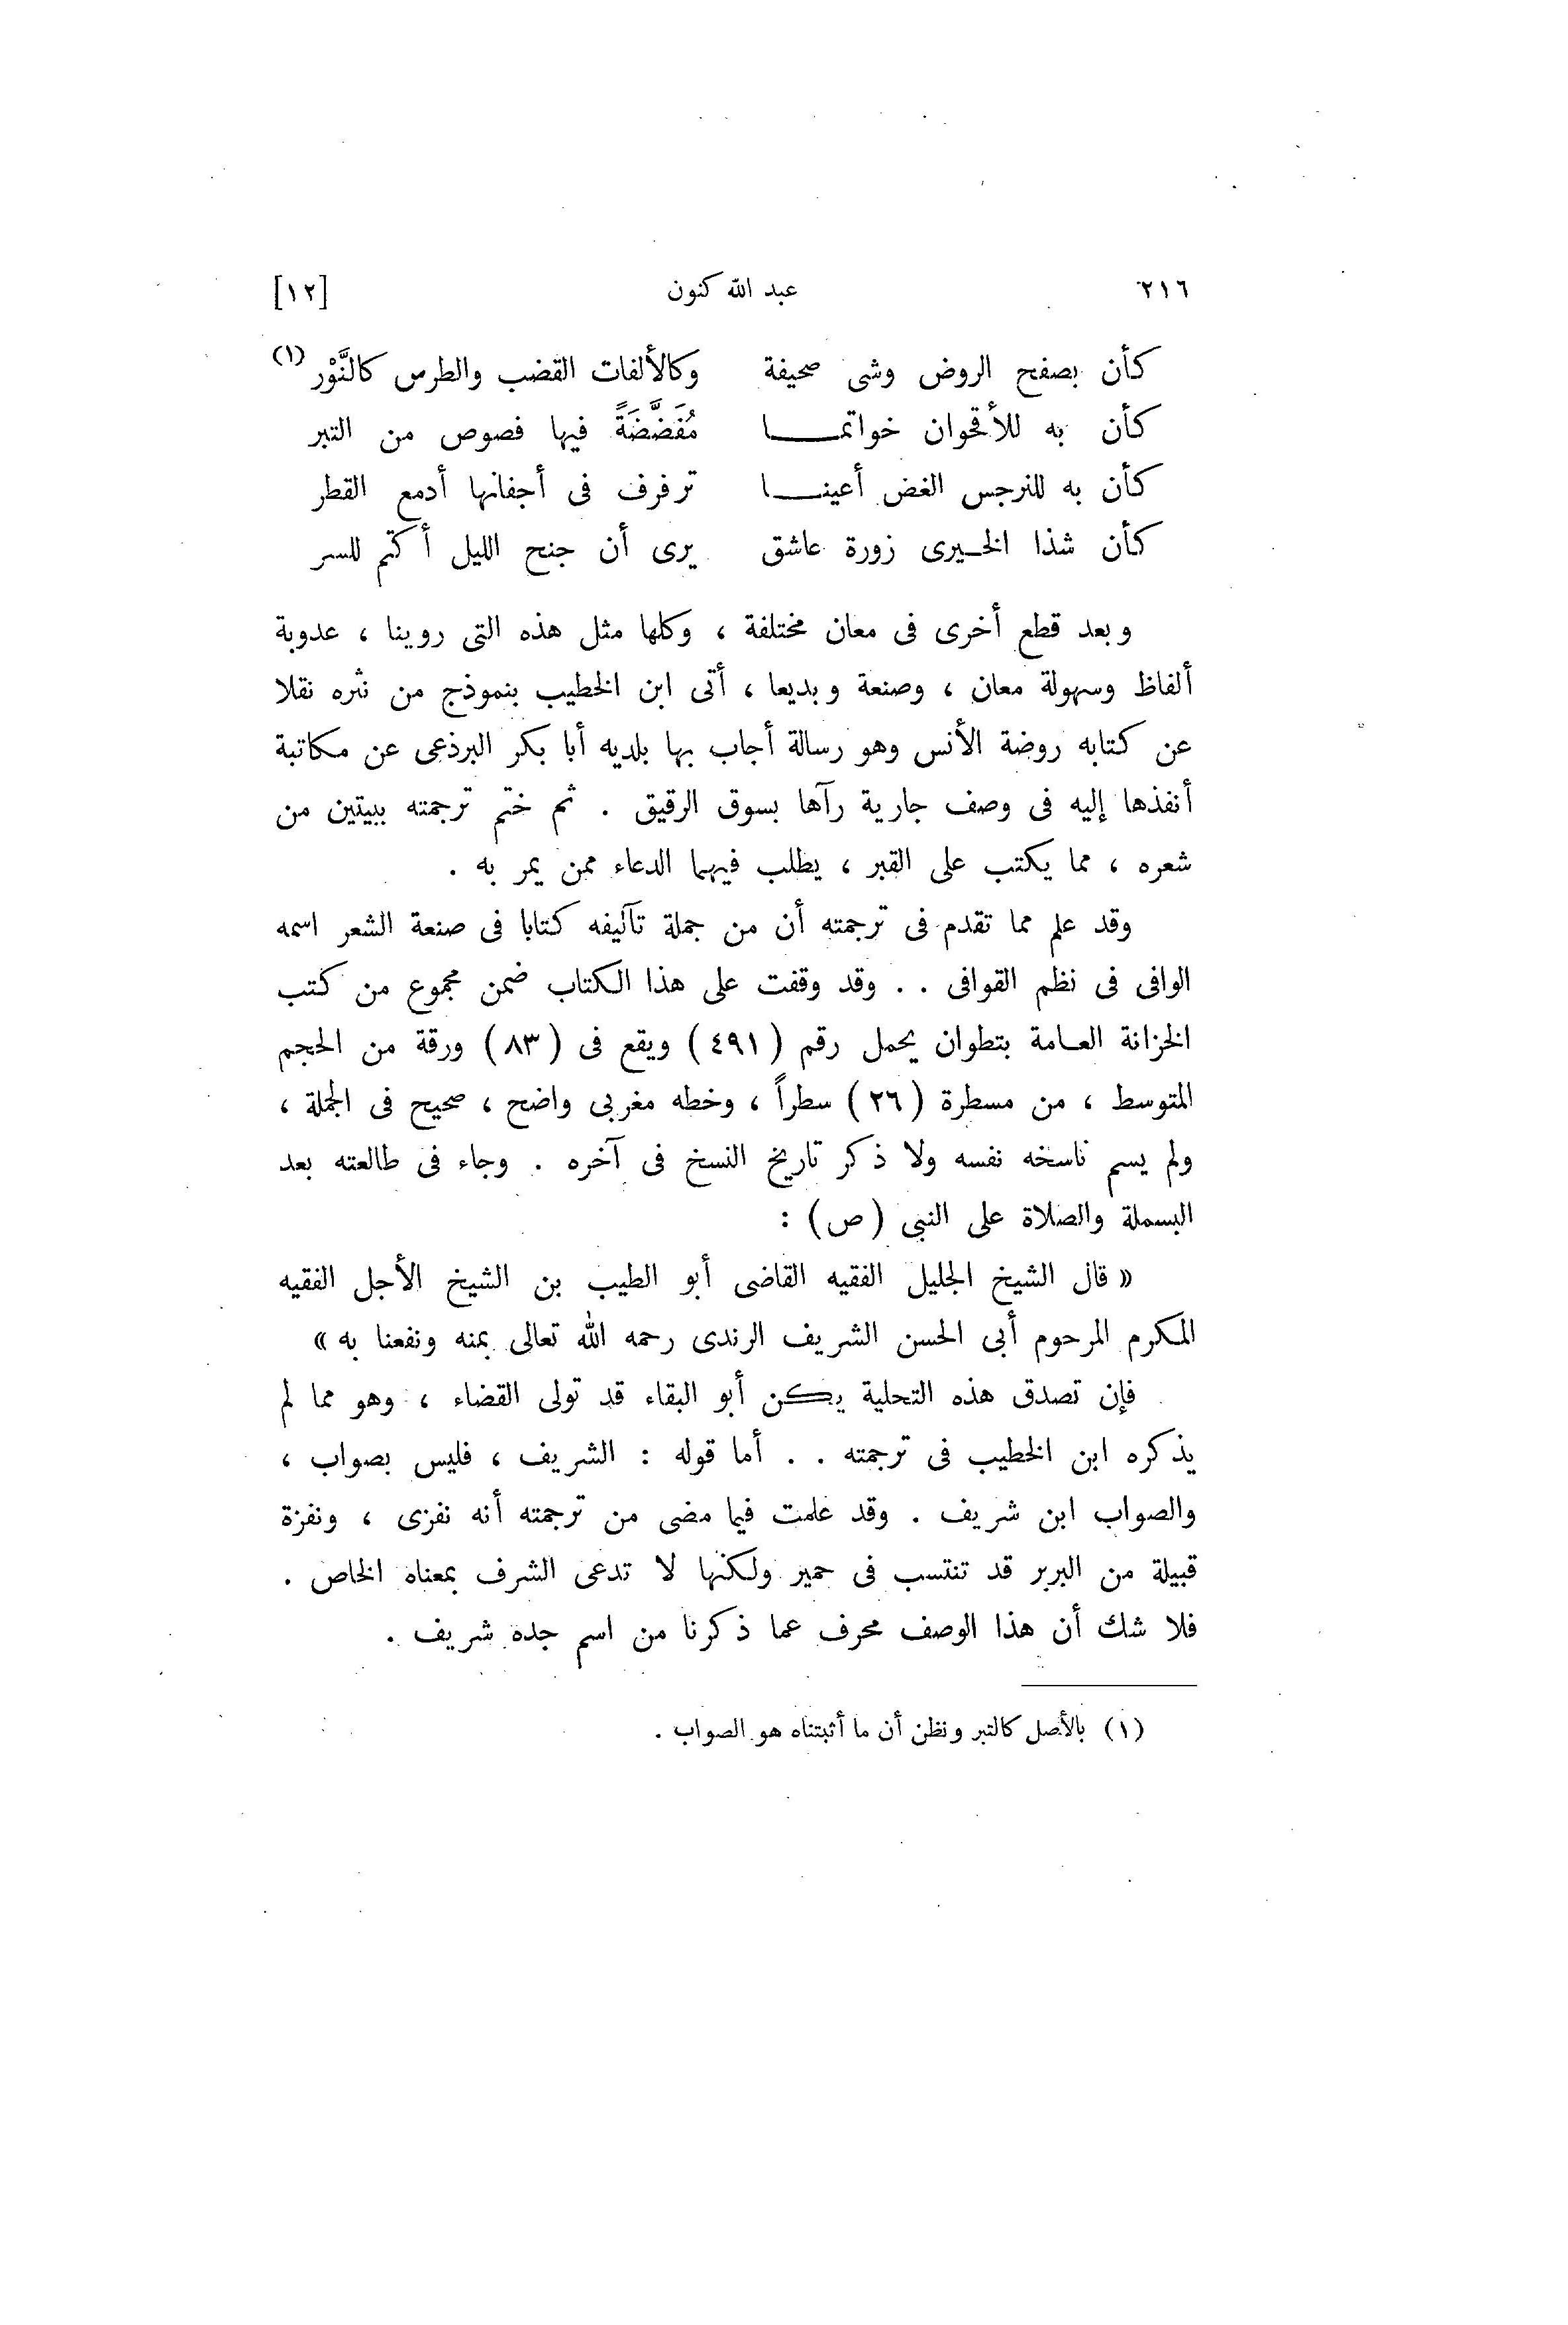 ٢١٦ عبد الله كنون [١٢]
كأن بصفح الروض وشى صحيفة وكالألفات القضب والطرس كالنَّوْر (١)
كأن به للأقحوان خواتمـــا مُفَضَّضَةً فيها فصوص من التبر
كأن به للنرجس الغض أعينـــا ترفرف فى أجفانها أدمع القطر
كأن شذا الخــيرى زورة عاشق يرى أن جنح الليل أكتم للسر
وبعد قطع أخرى فى معان مختلفة ، وكلها مثل هذه التى روينا ، عدوبة
ألفاظ وسهولة معان ، وصنعة وبديعا ، أتى ابن الخطيب بنموذج من نثره نقلا
عن كتابه روضة الأنس وهو رسالة أجاب بها بلديه أبا بكر البرذعى عن مكاتبة
أنفذها إليه فى وصف جارية رآها بسوق الرقيق . ثم ختم ترجمته ببيتين من
شعره ، مما يكتب على القبر ، يطلب فيهما الدعاء ممن يمر به .
وقد علم مما تقدم فى ترجمته أن من جملة تآليفه كتابا فى صنعة الشعر اسمه
الوافى فى نظم القوافى . . وقد وقفت على هذا الكتاب ضمن مجموع من كتب
الخزانة العامة بتطوان يحمل رقم (٤٩١) ويقع فى (٨٣) ورقة من الحجم
المتوسط ، من مسطرة (٢٦) سطراً ، وخطه مغربى واضح ، صحيح فى الجملة ،
ولم يسم ناسخه نفسه ولا ذكر تاريخ النسخ فى آخره . وجاء فى طالعته بعد
البسملة والصلاة على النبى (ص) :
« قال الشيخ الجليل الفقيه القاضى أبو الطيب بن الشيخ الأجل الفقيه
المكرم المرحوم أبى الحسن الشريف الرندى رحمه الله تعالى بمنه ونفعنا به »
فإن تصدق هذه التحلية يكن أبو البقاء قد تولى القضاء ، وهو مما لم
يذكره ابن الخطيب فى ترجمته . . أما قوله : الشريف ، فليس بصواب ،
والصواب ابن شريف . وقد علمت فيما مضى من ترجمته أنه نفزى ، ونفزة
قبيلة من البربر قد تنتسب فى حمير ولكنها لا تدعى الشرف بمعناه الخاص .
فلا شك أن هذا الوصف محرف عما ذكرنا من اسم جده شريف .
(١) بالأصل كالتبر ونظن أن ما أثبتناه هو الصواب .